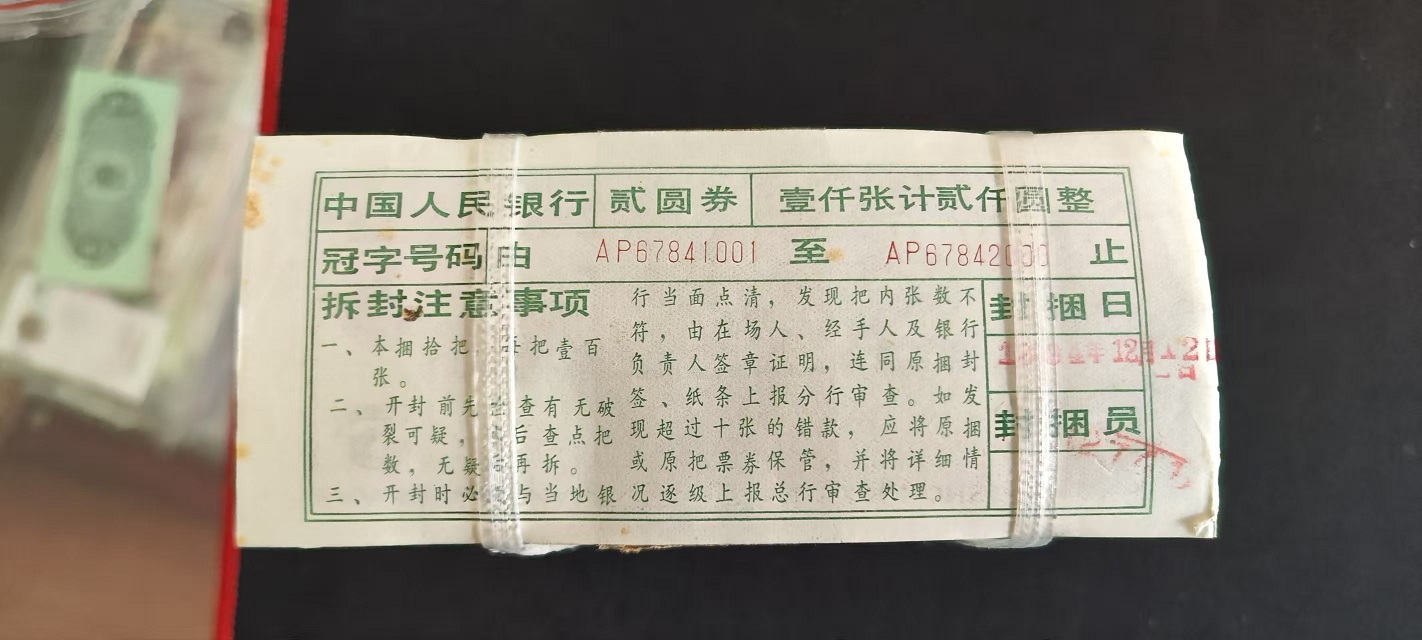 中国人民银行 贰圆券 壹仟张计贰仟圆整
冠字号码由 AP67841001 至 AP67842000 止
拆封注意事项
一、本捆拾把，每把壹百
张。
二、开封前先检查有无破
裂可疑，然后查点把
数，无疑后再拆。
三、开封时必须与当地银
行当面点清，发现把内张数不
符，由在场人、经手人及银行
负责人签章证明，连同原捆封
签、纸条上报分行审查。如发
现超过十张的错款，应将原捆
或原把票券保管，并将详细情
况逐级上报总行审查处理。
封捆日
年12月12日
封捆员